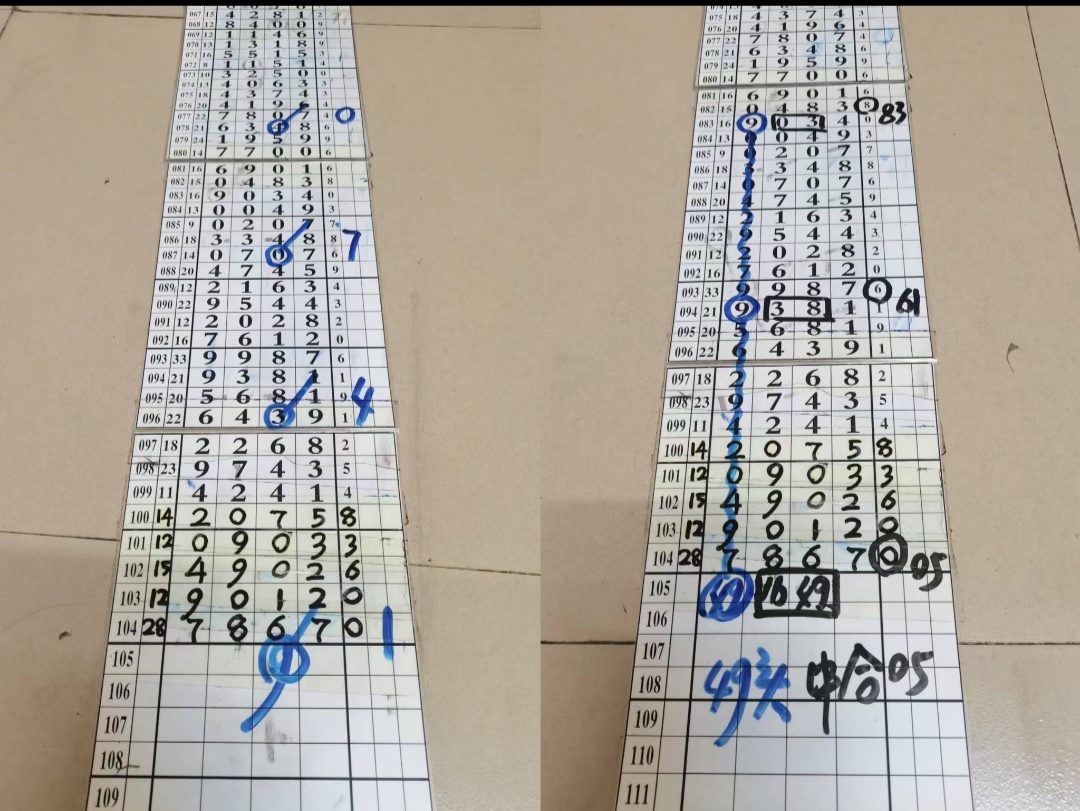 067 15 4 2 8 1 2
068 12 8 4 0 0 9
069 12 1 1 4 6 9
070 13 1 3 1 8 9
071 16 5 5 1 5 3
072 8 1 1 5 1 4
073 10 3 2 5 0 0
074 13 4 0 6 3 3
075 18 4 3 7 4 3
076 20 4 1 9 6 4
077 22 7 8 0 7 4 0
078 21 6 3 4 8 6
079 24 1 9 5 9 9
080 14 7 7 0 0 6
081 16 6 9 0 1 6
082 15 0 4 8 3 8
083 16 9 0 3 4 0
084 13 0 0 4 9 3
085 9 0 2 0 7 7
086 18 3 3 4 8 8 7
087 14 0 7 0 7 6
088 20 4 7 4 5 9
089 12 2 1 6 3 4
090 22 9 5 4 4 3
091 12 2 0 2 8 2
092 16 7 6 1 2 0
093 33 9 9 8 7 6
094 21 9 3 8 1 1
095 20 5 6 8 1 9 4
096 22 6 4 3 9 1
097 18 2 2 6 8 2
098 23 9 7 4 3 5
099 11 4 2 4 1 4
100 14 2 0 7 5 8
101 12 0 9 0 3 3
102 15 4 9 0 2 6
103 12 9 0 1 2 0
104 28 7 8 6 7 0 1
105
106
107
108
109
075 18 4 3 7 4 3
076 20 4 1 9 6 4
077 22 7 8 0 7 4
078 21 6 3 4 8 6
079 24 1 9 5 9 9
080 14 7 7 0 0 6
081 16 6 9 0 1 6
082 15 0 4 8 3 8 83
083 16 9 0 3 4 0
084 13 0 0 4 9 3
085 9 0 2 0 7 7
086 18 3 3 4 8 8
087 14 0 7 0 7 6
088 20 4 7 4 5 9
089 12 2 1 6 3 4
090 22 9 5 4 4 3
091 12 2 0 2 8 2
092 16 7 6 1 2 0
093 33 9 9 8 7 6
094 21 9 3 8 1 1 61
095 20 5 6 8 1 9
096 22 6 4 3 9 1
097 18 2 2 6 8 2
098 23 9 7 4 3 5
099 11 4 2 4 1 4
100 14 2 0 7 5 8
101 12 0 9 0 3 3
102 15 4 9 0 2 6
103 12 9 0 1 2 0
104 28 7 8 6 7 0 05
105 49 16 49
106
107
108 49头 中合05
109
110
111